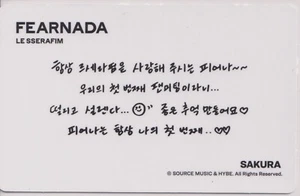 FEARNADA
LE SSERAFIM
항상 르세라핌을 사랑해 주시는 피어나~~
우리의 첫 번째 팬미팅이라니...
떨리고 설렌다...☺" 좋은 추억 만들어요♡
피어나는 항상 나의 첫 번째..♡♡
SAKURA
© SOURCE MUSIC & HYBE. All Rights Reserved.